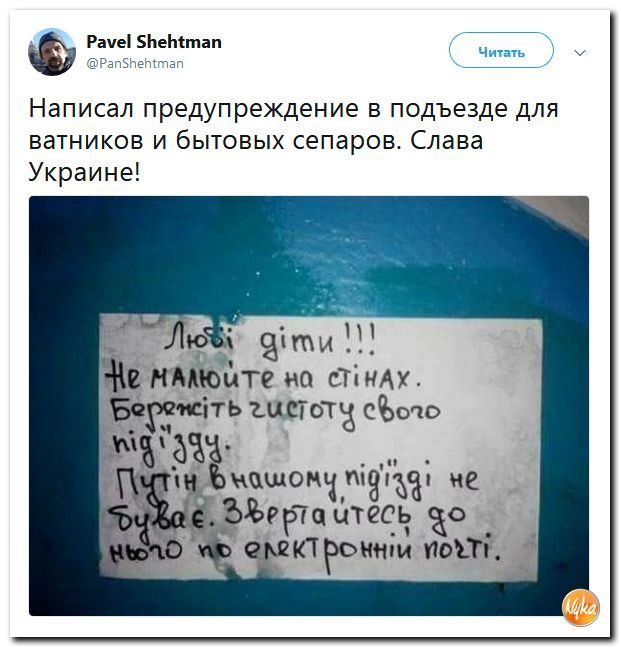 Pavel Shehtman
@PanShehtman
Читать
Написал предупреждение в подъезде для
ватников и бытовых сепаров. Слава
Украине!
Любі діти!!!
Не малюйте на стінах.
Бережіть чистоту свого
під'їзду.
Путін в нашому під'їзді не
буває. Звертайтесь до
нього по електронній почті.
Nyka